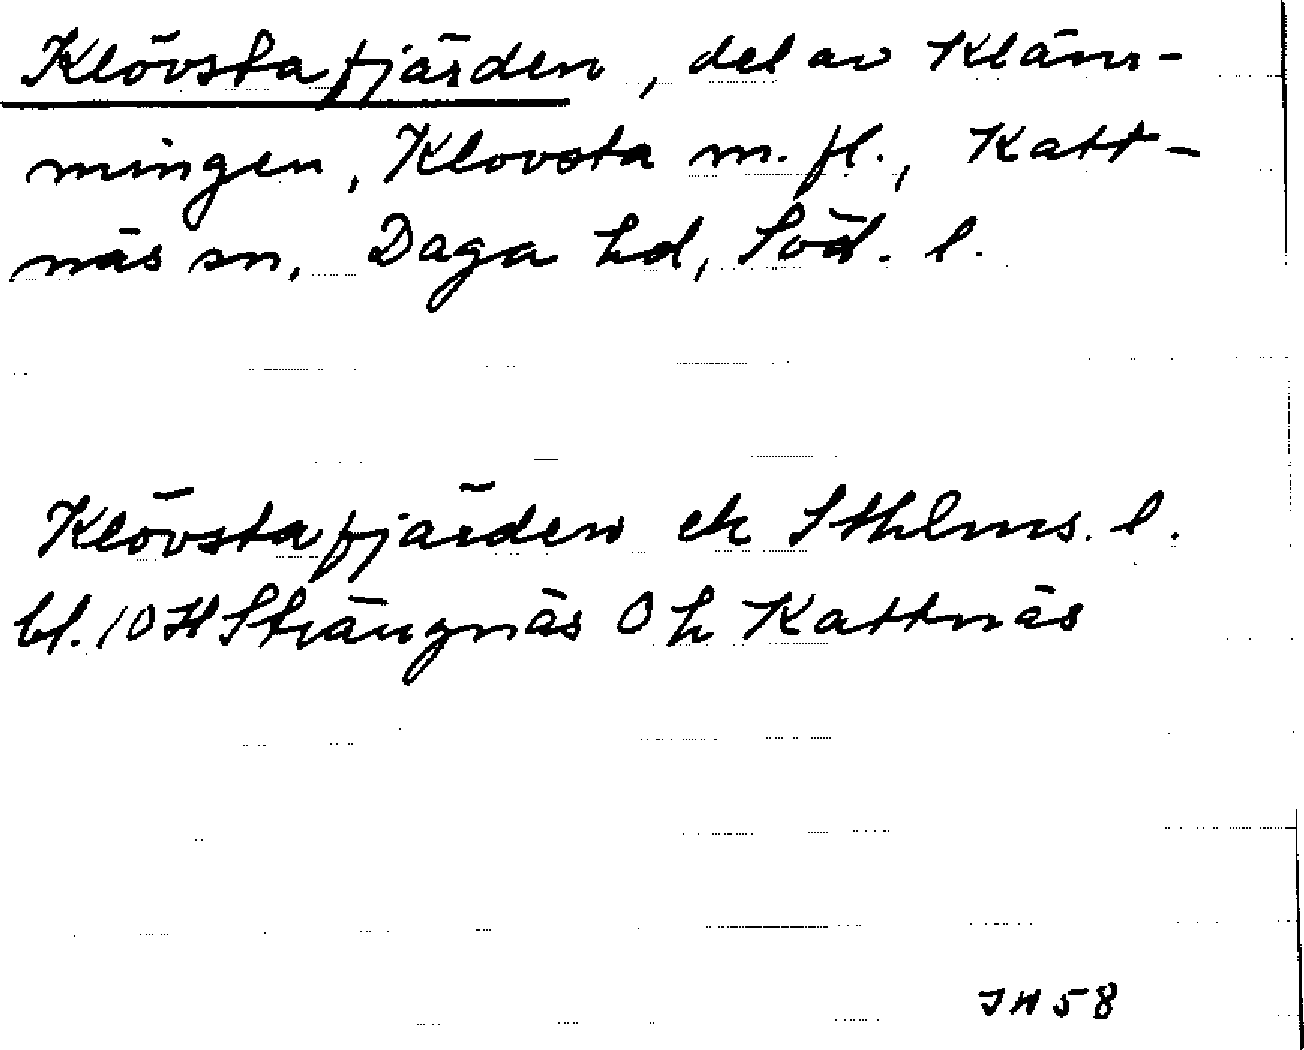 Klövstafjärden, del av Kläm-
mingen, Klovsta m. fl., Katt-
näs sn, Daga hd, Söd. l.
Klövstafjärden ek Sthlms. l.
bl. 10 H Strängnäs O h Kattnäs
JH 58